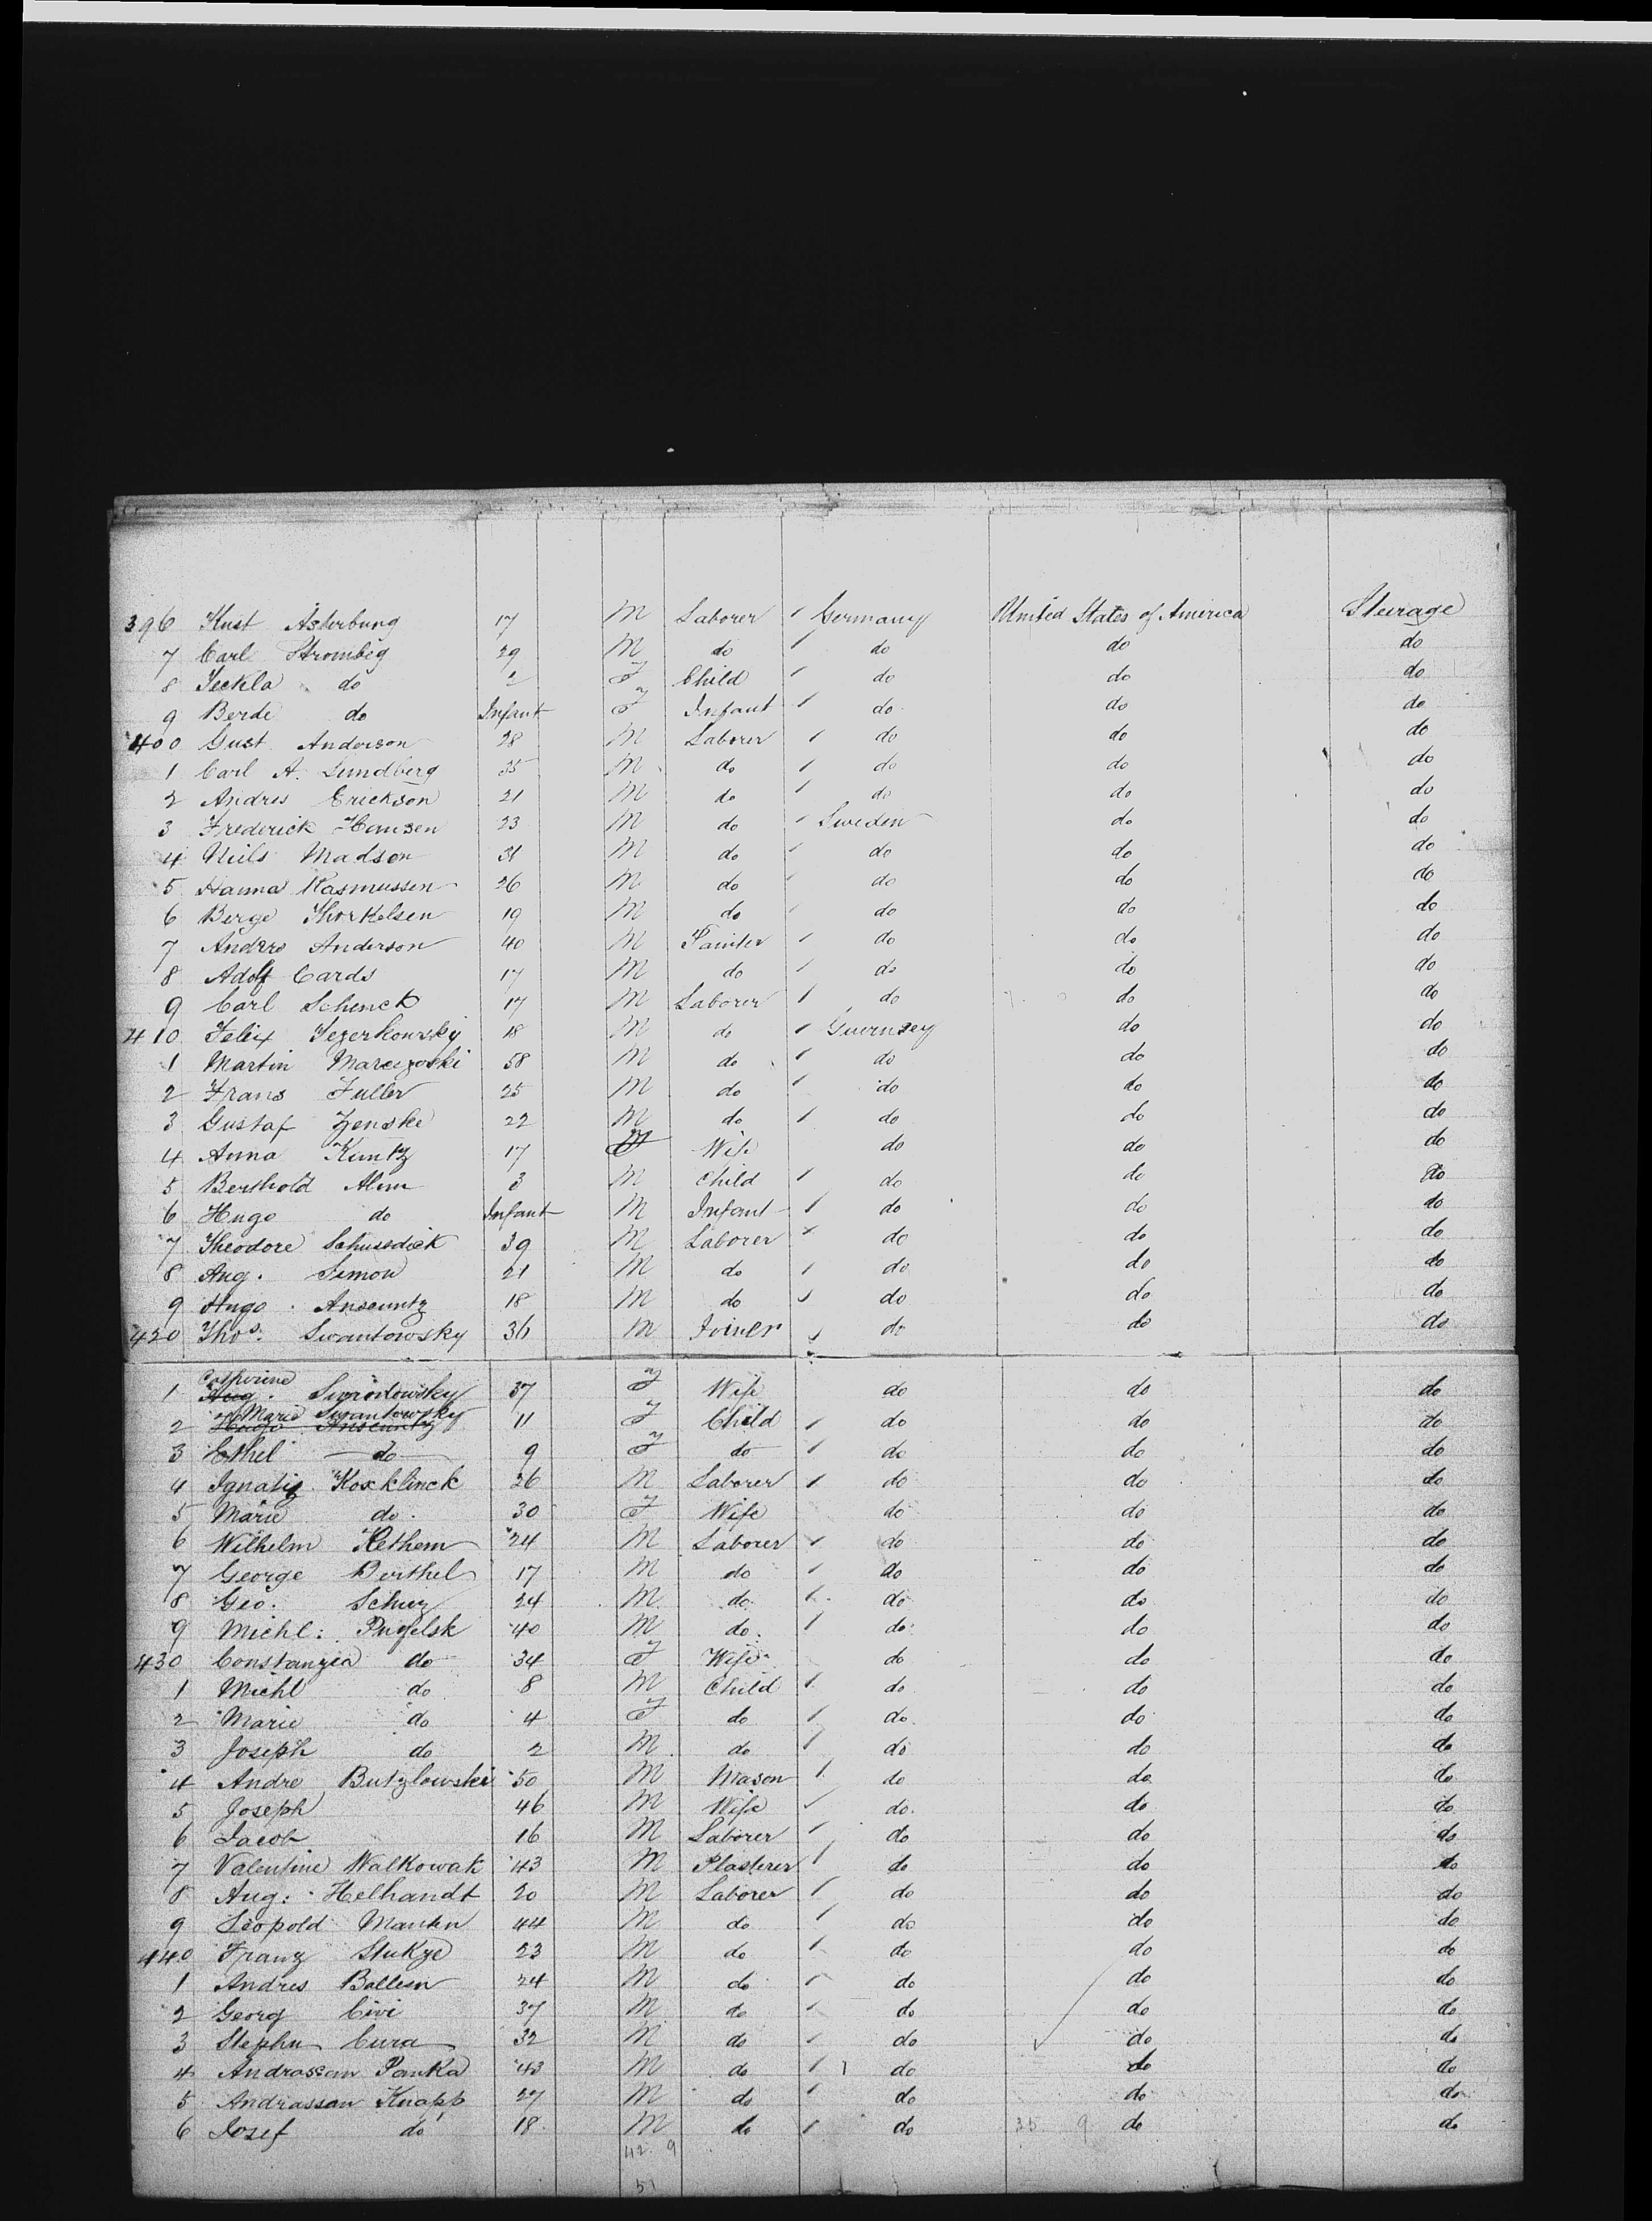 396 Kust Asterburg 17 M Laborer Germany United States of America Steerage
7 Carl Strombeg 29 M do do do do
8 Teckla do 2 F Child do do do
9 Berde do Infant F Infant do do do
400 Gust Anderson 28 M Laborer do do do
1 Carl A. Lundberg 35 M do do do do
2 Andres Erickson 21 M do do do do
3 Frederick Hansen 23 M do Sweden do do
4 Niels Madson 31 M do do do do
5 Hanna Rasmussen 26 M do do do do
6 Berge Thorkelsen 19 M do do do do
7 Andrew Anderson 40 M Painter do do do
8 Adolf Cards 17 M do do do do
9 Carl Schenck 17 M Laborer do do do
410 Felix Jezerkowsky 18 M do Guernsey do do
1 Martin 58 M do do do do
2 Frans Fuller 25 M do do do do
3 Gustaf Zenske 22 M do do do do
4 Anna Kuntz 17 F Wife do do do
5 Berthold Alm 3 M Child do do do
6 Hugo do Infant M Infant do do do
7 Theodore Schusedick 39 M Laborer do do do
8 Aug. Simon 21 M do do do do
9 Hugo Anscuntz 18 M do do do do
420 Thos. Swantowsky 36 M Joiner do do do
Catherine
1 Aug. Swantowsky 37 F Wife do do do
Marie Swantowsky
2 Hugo Anscuntz 11 F Child do do do
3 Ethel do 9 F do do do do
4 Ignatiz Kosklinck 26 M Laborer do do do
5 Marie do 30 F Wife do do do
6 Wilhelm Rethem 24 M Laborer do do do
7 George Berthel 17 M do do do do
8 Geo. Schuz 24 M do do do do
9 Michl: 40 M do do do do
430 Constanzia do 34 F Wife do do do
1 Michl do 8 M Child do do do
2 Marie do 4 F do do do do
3 Joseph do 2 M do do do do
4 Andre Butzlowski 50 M Mason do do do
5 Joseph 46 M Wife do do do
6 Jacob 16 M Laborer do do do
7 Valentine Walkowak 43 M Plasterer do do do
8 Aug: Helhandt 20 M Laborer do do do
9 Leopold Manten 44 M do do do do
440 Franz Stukze 23 M do do do do
1 Andres Balleen 24 M do do do do
2 Georg Civi 37 M do do do do
3 Stephn Cura 32 M do do do do
4 Andrassan Panka 43 M do do do do
5 Andrassan Knapp 27 M do do do do
6 Josef do 18 M do do 35 9 do do
42 9
51